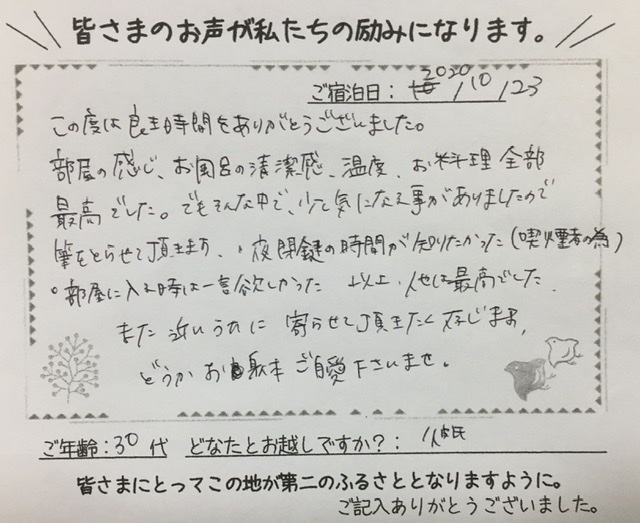 皆さまのお声が私たちの励みになります。
ご宿泊日: 2020/10/23
この度は良き時間をありがとうございました。
部屋の感じ、お風呂の清潔感、温度、お料理全部
最高でした。でもそんな中で、少々気になる事がありましたので
筆をとらせて頂きます。・夜閉鍵の時間が知りたかった(喫煙者の為)
・部屋に入る時は一言欲しかった 以上、他は最高でした。
また近いうちに寄らせて頂きたく存じます。
どうかお身体ご自愛下さいませ。
ご年齢:30代 どなたとお越しですか?: 彼氏
皆さまにとってこの地が第二のふるさととなりますように。
ご記入ありがとうございました。